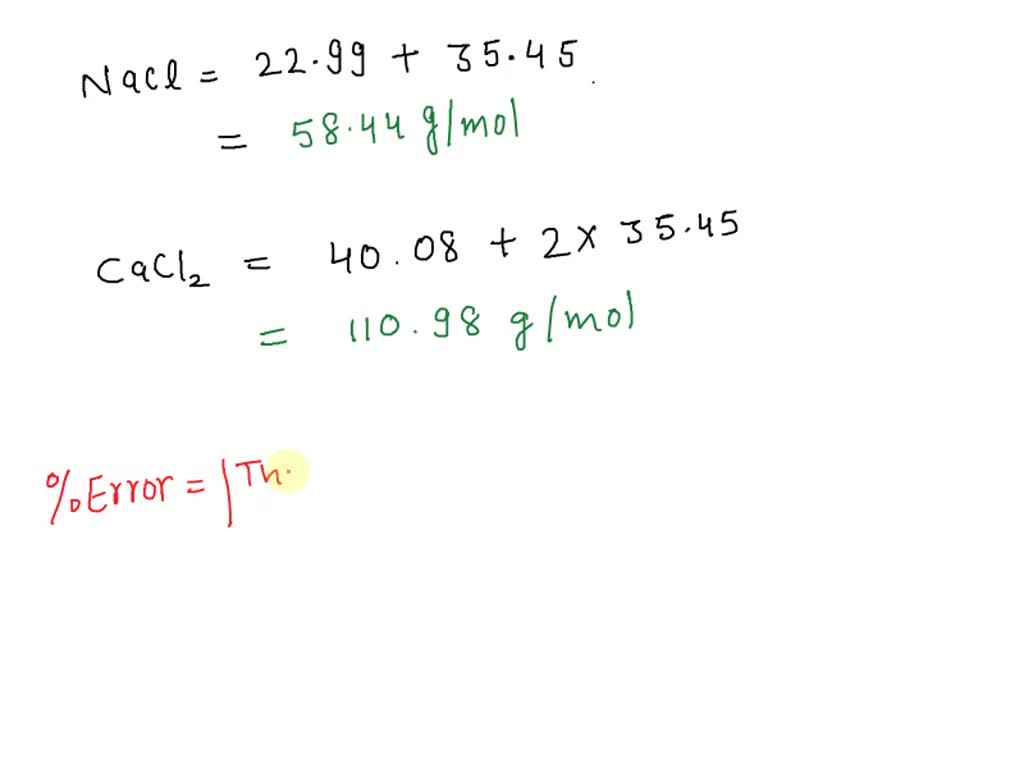 NaCl = 22.99 + 35.45
= 58.44 g/mol
CaCl₂ = 40.08 + 2 × 35.45
= 110.98 g/mol
%Error = |Th.